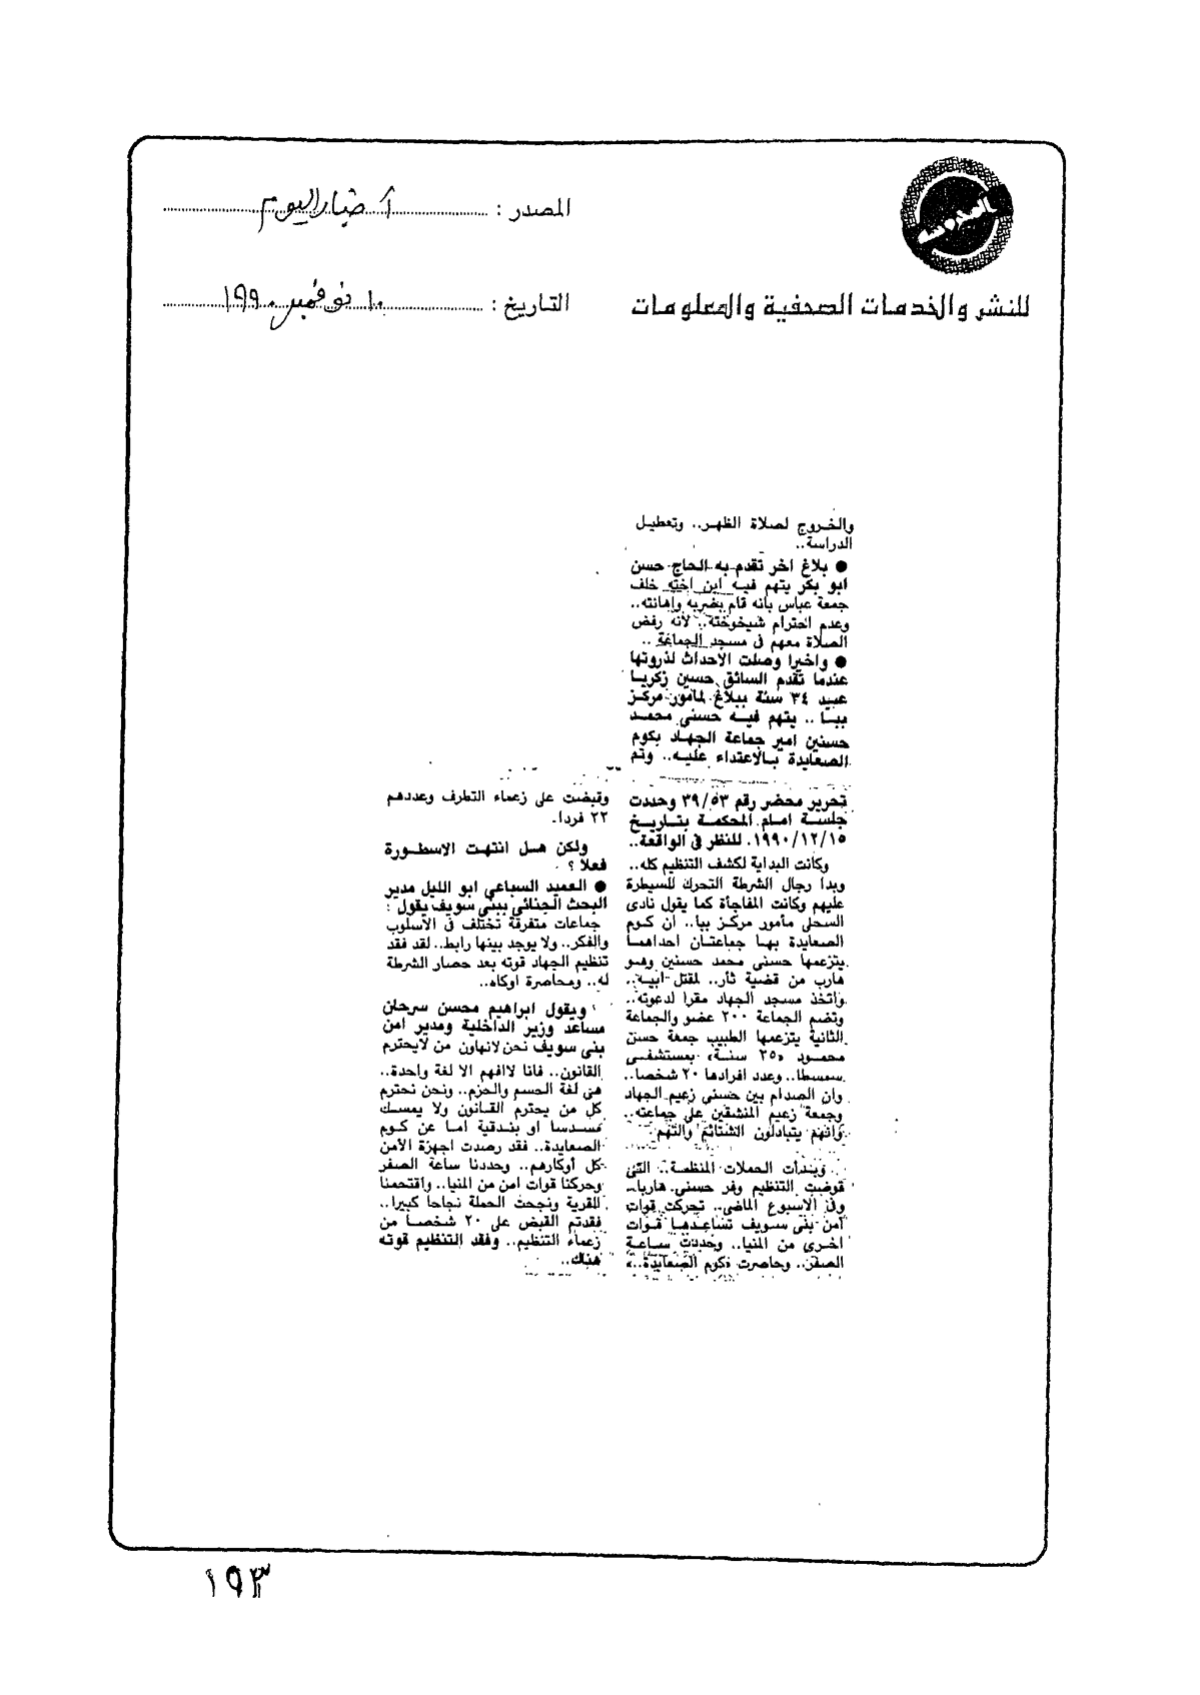 المصدر : أخبار اليوم
التاريخ : ١٠ نوفمبر ١٩٩٠
للنشر والخدمات الصحفية والمعلومات
والخروج لصلاة الظهر.. وتعطيل
الدراسة..
● بلاغ اخر تقدم به الحاج حسن
ابو بكر يتهم فيه ابن اخته خلف
جمعة عباس بانه قام بضربه وإهانته..
وعدم احترام شيخوخته.. لأنه رفض
الصلاة معهم فى مسجد الجماعة ..
● واخيرا وصلت الاحداث لذروتها
عندما تقدم السائق حسين زكريا
عبيد ٣٤ سنة ببلاغ لمأمور مركز
ببا .. يتهم فيه حسنى محمد
حسنين امير جماعة الجهاد بكوم
الصعايدة بالاعتداء عليه.. وتم
تحرير محضر رقم ٣٩/٥٣ وحددت
جلسة امام المحكمة بتاريخ
١٩٩٠/١٢/١٥. للنظر فى الواقعة..
وكانت البداية لكشف التنظيم كله..
وبدا رجال الشرطة التحرك للسيطرة
عليهم وكانت المفاجأة كما يقول نادى
السحلى مأمور مركز ببا.. ان كوم
الصعايدة بها جماعتان احداهما
يتزعمها حسنى محمد حسنين وهو
هارب من قضية ثأر.. لمقتل ابيه..
واتخذ مسجد الجهاد مقرا لدعوته..
وتضم الجماعة ٢٠٠ عضو والجماعة
الثانية يتزعمها الطبيب جمعة حسن
محمود «٢٥ سنة» بمستشفى
سمسطا.. وعدد افرادها ٢٠ شخصا..
وان الصدام بين حسنى زعيم الجهاد
وجمعة زعيم المنشقين على جماعته..
وانهم يتبادلون الشتائم والتهم
وبدأت الحملات المنظمة.. التى
قوضت التنظيم وفر حسنى هاربا..
وفى الاسبوع الماضى.. تحركت قوات
امن بنى سويف تساعدها قوات
اخرى من المنيا.. وحددت ساعة
الصفر.. وحاصرت «كوم الصعايدة..»
وقبضت على زعماء التطرف وعددهم
٢٢ فردا.
ولكن هل انتهت الاسطورة
فعلا ؟
● العميد السباعي ابو الليل مدير
البحث الجنائي ببنى سويف يقول :
جماعات متفرقة تختلف فى الأسلوب
والفكر.. ولا يوجد بينها رابط.. لقد فقد
تنظيم الجهاد قوته بعد حصار الشرطة
له.. ومحاصرة اوكاه..
ويقول ابراهيم محسن سرحان
مساعد وزير الداخلية ومدير امن
بنى سويف نحن لانهاون من لايحترم
القانون.. فانا لاافهم الا لغة واحدة..
هى لغة الحسم والحزم.. ونحن نحترم
كل من يحترم القانون ولا يمسك
مسدسا او بندقية اما عن كوم
الصعايدة.. فقد رصدت اجهزة الأمن
كل أوكارهم.. وحددنا ساعة الصفر
وحركنا قوات امن من المنيا.. واقتحمنا
القرية ونجحت الحملة نجاحا كبيرا..
فقدتم القبض على ٢٠ شخصا من
زعماء التنظيم.. وفقد التنظيم قوته
هناك..
١٩٣